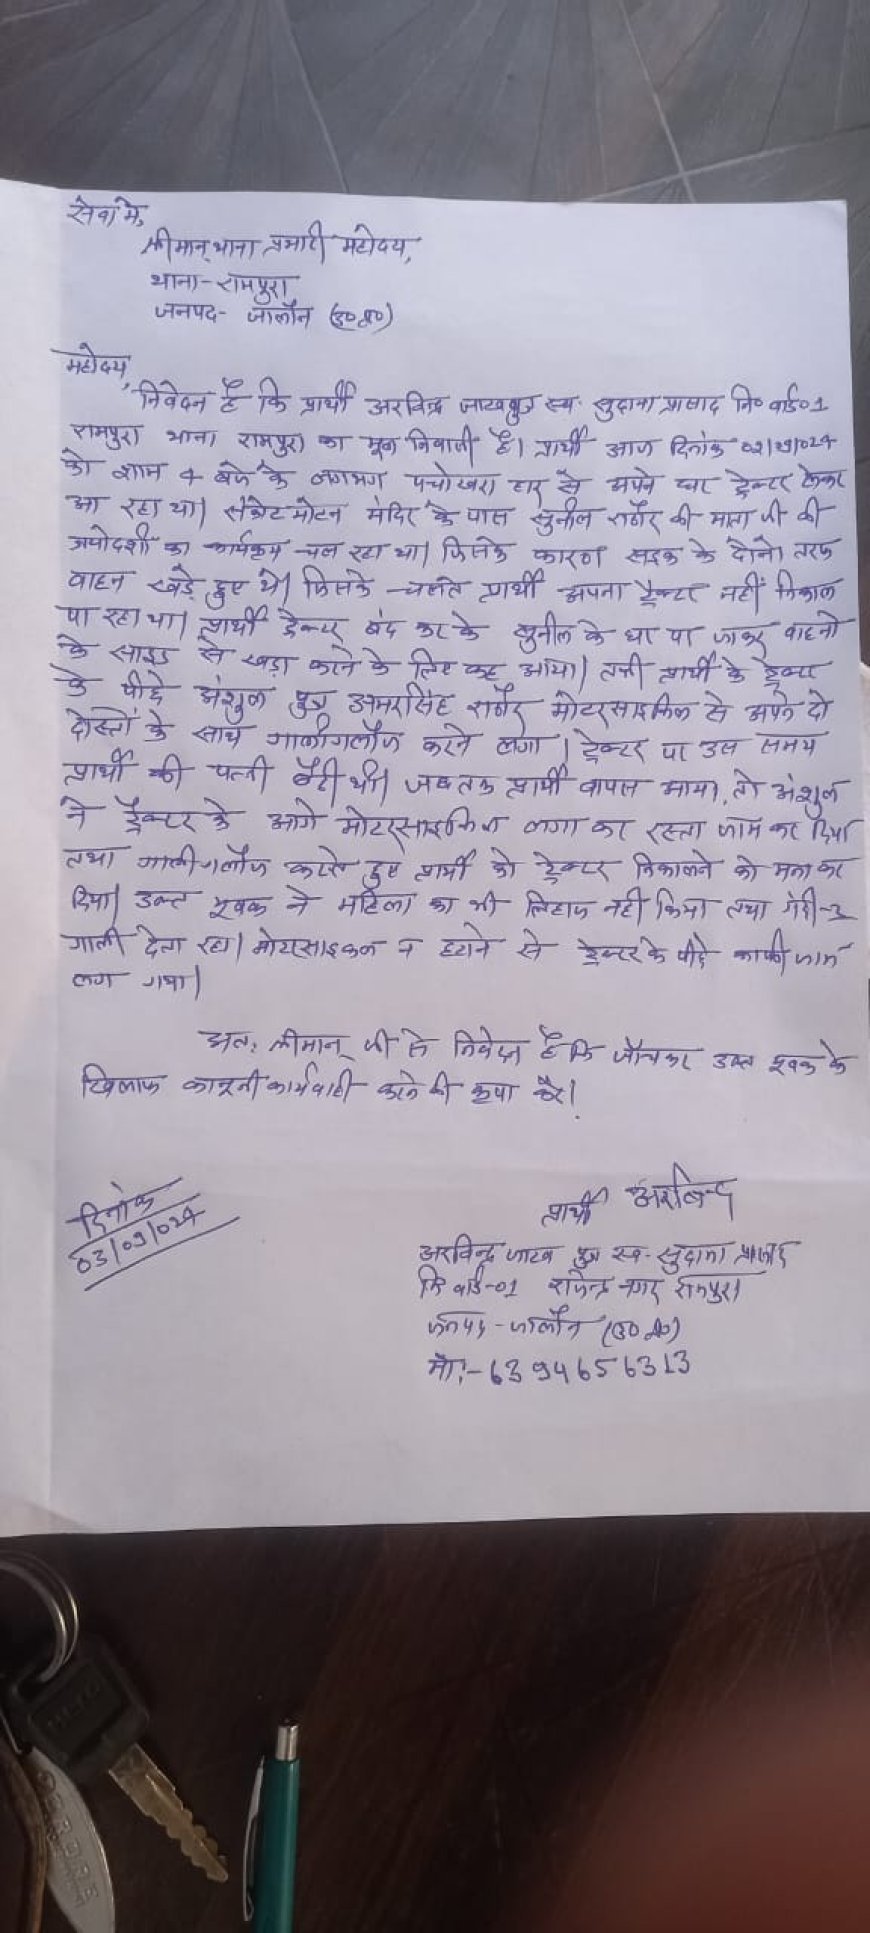 सेवा में,
श्रीमान् थाना प्रभारी महोदय,
थाना - रामपुरा
जनपद - जालौन (उ० प्र०)
महोदय,
निवेदन है कि प्रार्थी अरविन्द्र जाटव पुत्र स्व. सुदामा प्रसाद नि० वार्ड ०1
रामपुरा थाना रामपुरा का मूल निवासी है। प्रार्थी आज दिनांक
को शाम 4 बजे के लगभग पचोखरा हार से अपने घर ट्रेक्टर लेकर
आ रहा था। मंदिर के पास सुनील राठौर की माता जी की
त्रयोदशी का कार्यक्रम चल रहा था। जिसके कारण सड़क के दोनो तरफ
वाहन खड़े हुए थे। जिसके चलते प्रार्थी अपना ट्रैक्टर नहीं निकाल
पा रहा था। प्रार्थी ट्रेक्टर बंद कर के सुनील के घर पर जाकर वाहनो
के साइड से खड़ा करने के लिए कह आया। तभी प्रार्थी के ट्रेक्टर
के पीछे अंशुल पुत्र अमरसिंह राठौर मोटरसाइकिल से अपने दो
दोस्तों के साथ गालीगलौज करने लगा। ट्रेक्टर पर उस समय
प्रार्थी की पत्नी बैठी थी। जब तक प्रार्थी वापस आया, तो अंशुल
ने ट्रैक्टर के आगे मोटरसाइकिल लगा कर रास्ता जाम कर दिया
तथा गालीगलौज करते हुए प्रार्थी को ट्रेक्टर निकालने को मना कर
दिया। उक्त युवक ने महिला का भी लिहाज नहीं किया तथा गंदी-2
गाली देता रहा। मोटरसाइकल न हटाने से ट्रेक्टर के पीछे काफी जाम
लग गया।
अतः श्रीमान् जी से निवेदन है कि जाँच कर उक्त युवक के
खिलाफ कानूनी कार्यवाही करने की कृपा करें।
दिनांक
03/09/024
प्रार्थी अरविन्द्र
अरविन्द्र जाटव पुत्र स्व. सुदामा प्रसाद
नि वार्ड-01 राजेन्द्र नगर रामपुरा
जनपद - जालौन (उ० प्र०)
मो:- 6394656313